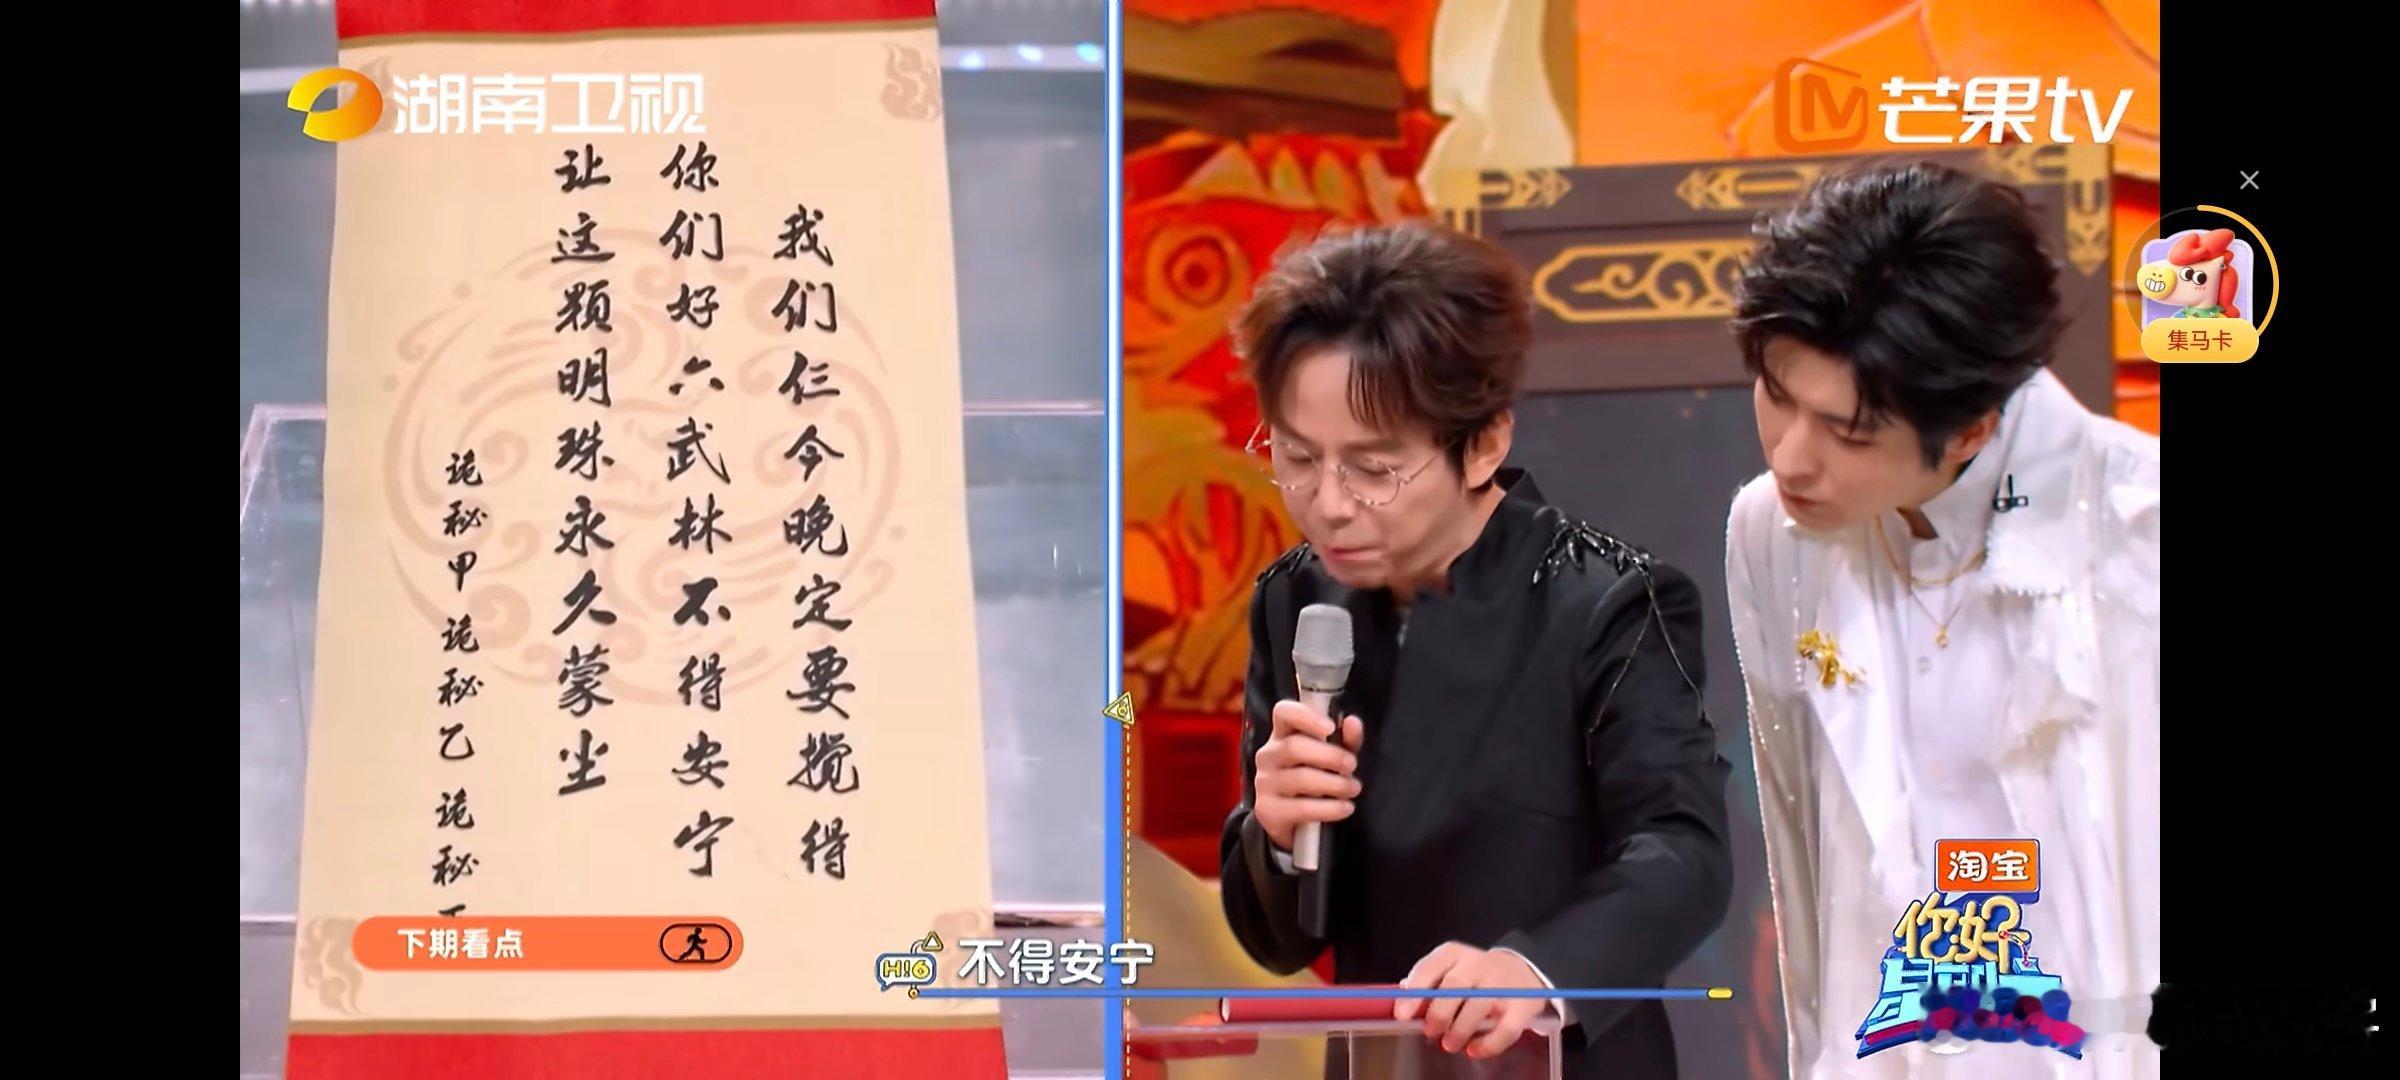 湖南卫视
芒果tv
我们仨今晚定要搅得
你们好六武林不得安宁
让这颗明珠永久蒙尘
诡秘甲 诡秘乙 诡秘
集马卡
下期看点
H!6
不得安宁
淘宝
你好
星期六